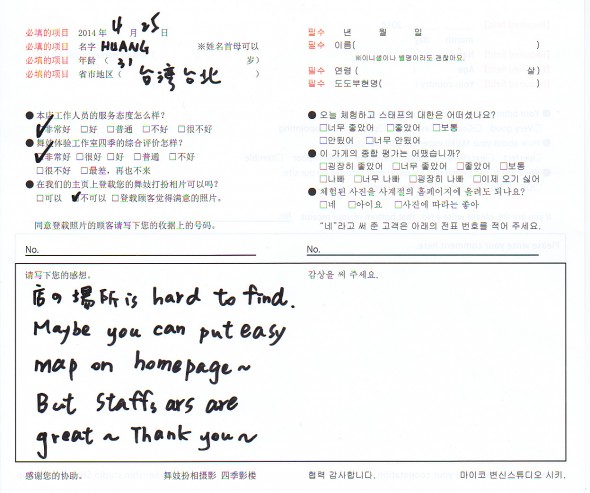 必填的项目 2014年 4 月 25 日
必填的项目 名字 HUANG ※姓名首母可以
必填的项目 年龄 ( 31 岁)
必填的项目 省市地区 ( 台湾台北 )
● 本店工作人员的服务态度怎么样?
☑非常好 □好 □普通 □不好 □很不好
● 舞妓体验工作室四季的综合评价怎样?
☑非常好 □很好 □好 □普通 □不好
□很不好 □最差，再也不来
● 在我们的主页上登载您的舞妓打扮相片可以吗?
□可以 ☑不可以 □登载顾客觉得满意的照片。
同意登载照片的顾客请写下您的收据上的号码。
No.
请写下您的感想。
店の場所is hard to find.
Maybe you can put easy
map on homepage~
But staffs ars are
great~ Thank you~
感谢您的协助。 舞妓扮相摄影 四季影楼
필수 년 월 일
필수 이름( )
※이니셜이나 별명이라도 괜찮아요.
필수 연령 ( 살)
필수 도도부현명( )
● 오늘 체험하고 스태프의 대한은 어떠셨나요?
□너무 좋았어 □좋았어 □보통
□안됬어 □너무 안됬어
● 이 가게의 종합 평가는 어땠습니까?
□굉장히 좋았어 □너무 좋았어 □좋았어 □보통
□나빠 □너무 나빠 □굉장히 나빠 □이제 오기 싫어
● 체험된 사진을 사계절의 홈페이지에 올려도 되나요?
□네 □아이요 □사진에 따라는 좋아
"네"라고 써 준 고객은 아래의 전표 번호를 적어 주세요.
No.
감상을 써 주세요.
협력 감사합니다. 마이코 변신스튜디오 시키.